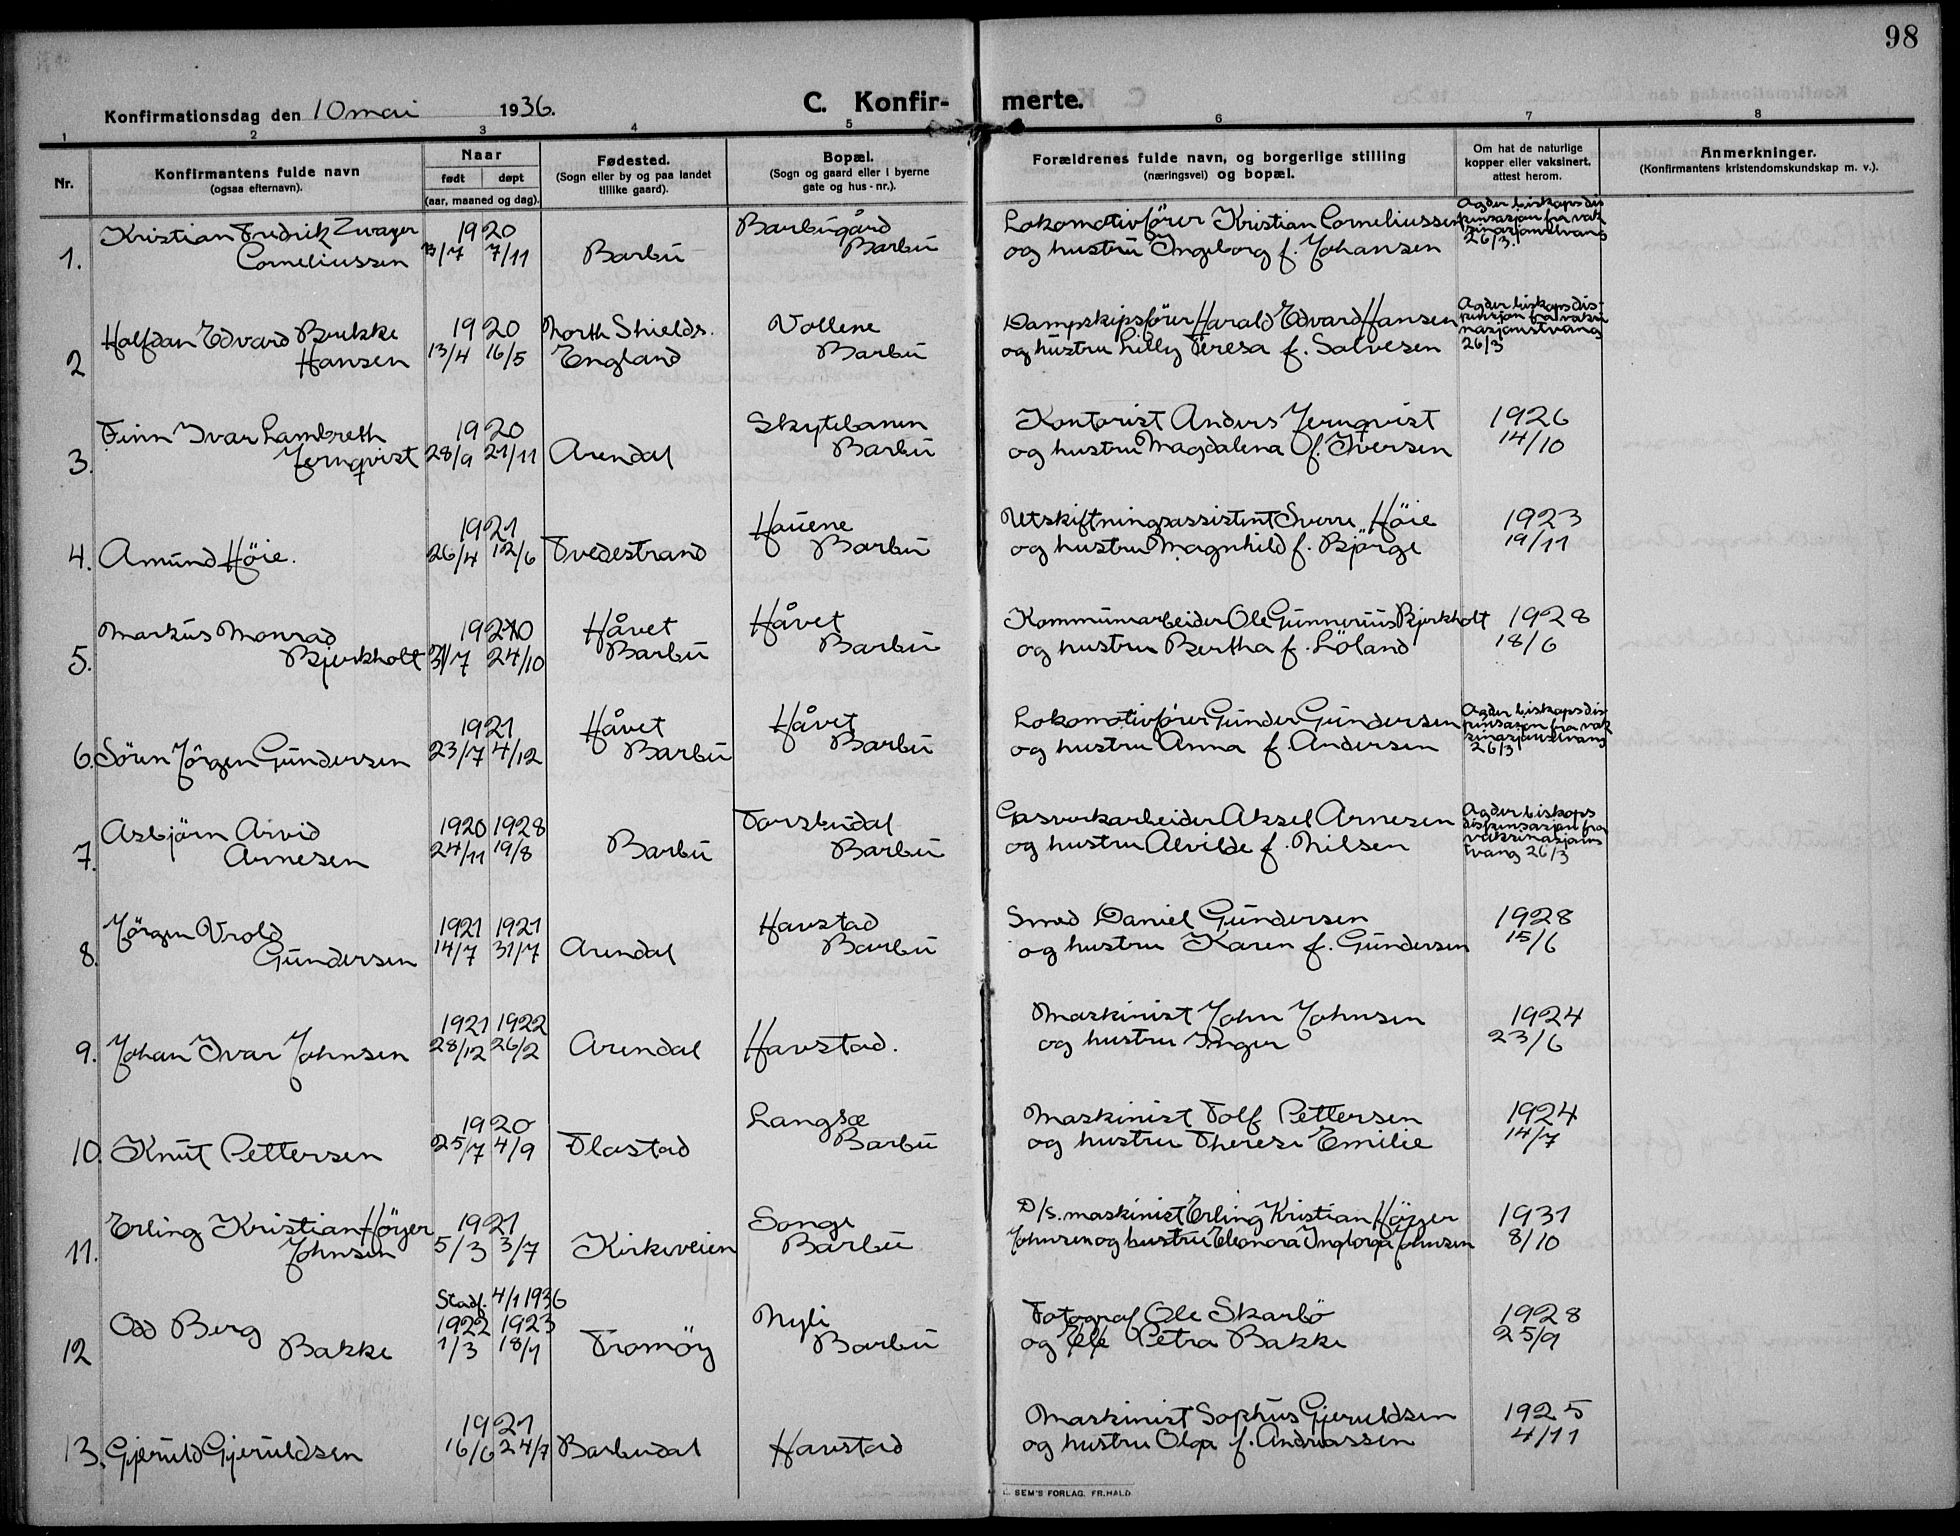 98
Konfirmationsdag den 10 mai 1936.
C. Konfir- merte.
1 2 3 4 5 6 7 8
Nr.
Konfirmantens fulde navn
(ogsaa efternavn).
Naar
født døpt
(aar, maaned og dag).
Fødested.
(Sogn eller by og paa landet
tillike gaard).
Bopæl.
(Sogn og gaard eller i byerne
gate og hus-nr.).
Forældrenes fulde navn, og borgerlige stilling
(næringsvei) og bopæl.
Om hat de naturlige
kopper eller vaksinert,
attest herom.
Anmerkninger.
(Konfirmantens kristendomskundskap m. v.).
Kristian Fredrik Zwager 1920 Barbugård Lokomotivfører Kristian Corneliussen Agder biskops dis-
pensasjon fra vak
sinasjonstvang
1. Corneliussen 3/7 7/11 Barbu Barbu og hustru Ingeborg f. Johansen 26/3.
Halfdan Edvard Bukke 1920 North Shields. Vollene Dampskipsfører Harald Edvard Hansen Agder biskops dis-
pensasjon fra vaksi
nasjonstvang
2 Hansen 13/4 16/5 England Barbu og hustru Lilly Teresa f. Salvesen 26/3
Finn Ivar Lambreth 1920 Skytebanen Kontorist Anders Jernqvist 1926
3. Jernqvist 28/9 21/11 Arendal Barbu og hustru Magdalena f. Iversen 14/10
1921 Hauene Utskiftningsassistent Sverre Höie 1923
4. Amund Höie. 26/4 12/6 Tvedestrand Barbu og hustru Magnhild f. Bjorge 19/11
Markus Monrad 1920 Håvet Håvet Kommunearbeider Ole Gunnerius Bjerkholt 1928
5. Bjerkholt 31/7 24/10 Barbu Barbu og hustru Bertha f. Löland 18/6
1921 Håvet Håvet Lokomotivfører Gunder Gundersen Agder biskops dis
pensasjon fra vak
sinasjonstvang
6. Sören Jörgen Gundersen 23/7 4/12 Barbu Barbu og hustru Anna f. Andersen 26/3
Asbjörn Arvid 1920 1928 Torsbudal Gasverkarbeider Aksel Arnesen Agder biskops
dispensasjon fra
vaksinasjons
7. Arnesen 24/11 19/8 Barbu Barbu og hustru Alvilde f. Nilsen tvang 26/3
Jörgen Vrold 1921 1921 Havstad Smed Daniel Gundersen 1928
8. Gundersen 14/7 31/7 Arendal Barbu og hustru Karen f. Gundersen 15/6
1921 1922 Maskinist John Johnsen 1924
9. Johan Ivar Johnsen 28/12 26/2 Arendal Havstad. og hustru Inger 23/6
1920 Langsæ Maskinist Tolf Pettersen 1924
10. Knut Pettersen 25/7 4/9 Flostad Barbu og hustru Therese Emilie 14/7
Erling Kristian Höyer 1921 Songe D/s. maskinist Erling Kristian Höyer 1931
11. Johnsen 5/3 3/7 Kirkeveien Barbu Johnsen og hustru Eleonora Ingborga Johnsen 8/10
Stadf. 4/1 1936
Odd Berg 1922 1923 Nyli Fotograf Ole Skarbö 1928
12 Bakke 1/3 18/1 Tromöy Barbu og Petra Bakke 25/9
1921 Maskinist Sophus Gjeruldsen 1925
13. Gjeruld Gjeruldsen 16/6 24/7 Barbudal Havstad og hustru Olga f. Andreassen 4/11
SEM'S FORLAG. FR.HALD